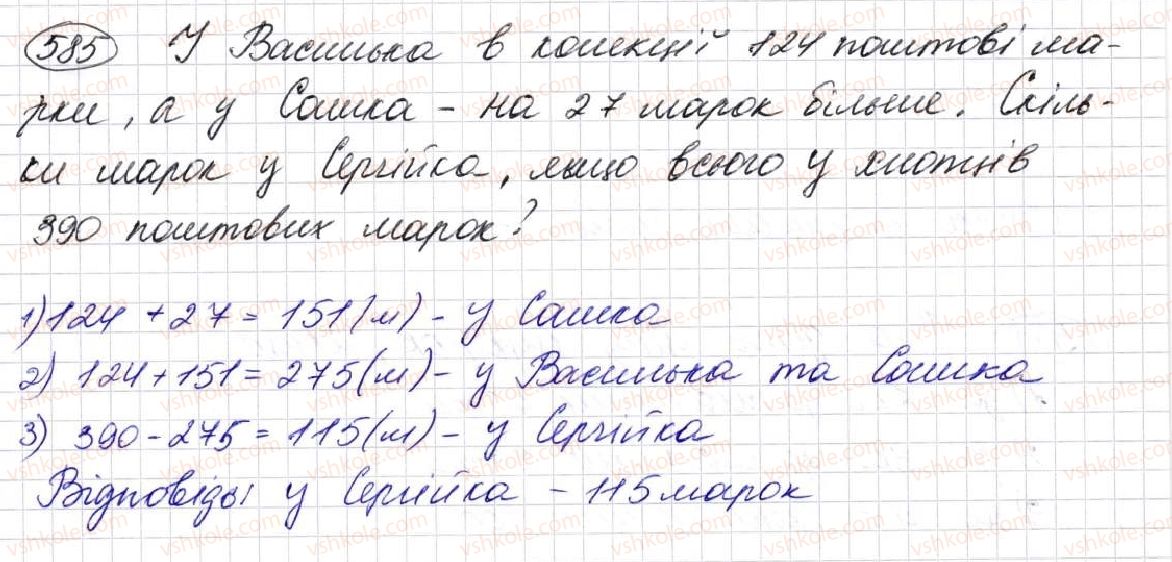 585 У Василька в колекції 124 поштові ма-
рки, а у Сашка - на 27 марок більше. Скіль-
ки марок у Сергійка, якщо всього у хлопців
390 поштових марок?
1) 124 + 27 = 151 (м) - у Сашка
2) 124 + 151 = 275 (м) - у Василька та Сашка
3) 390 - 275 = 115 (м) - у Сергійка
Відповідь: у Сергійка - 115 марок